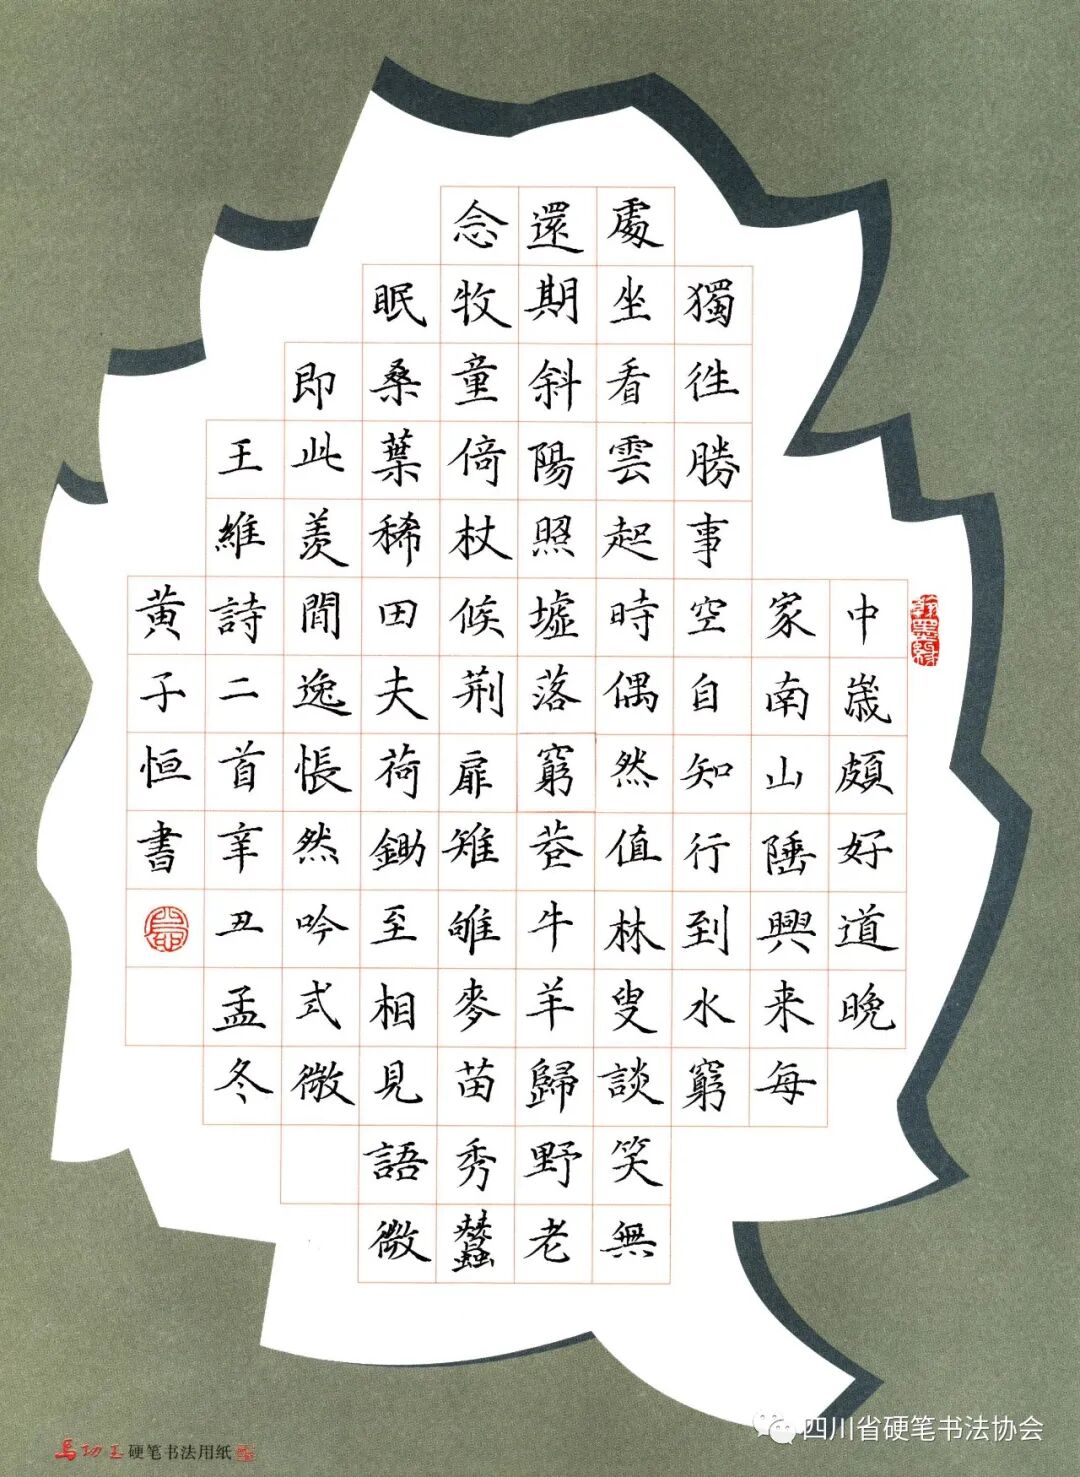 翰墨緣
中歲頗好道晚
家南山陲興来每
獨徃勝事空自知行到水窮
處坐看雲起時偶然值林叟談笑無
還期斜陽照墟落窮巷牛羊歸野老
念牧童倚杖候荆扉雉雊麥苗秀蠶
眠桑葉稀田夫荷鋤至相見語微
即此羨閒逸悵然吟式微
王維詩二首辛丑孟冬
黄子恒書
硬笔书法用纸
四川省硬笔书法协会